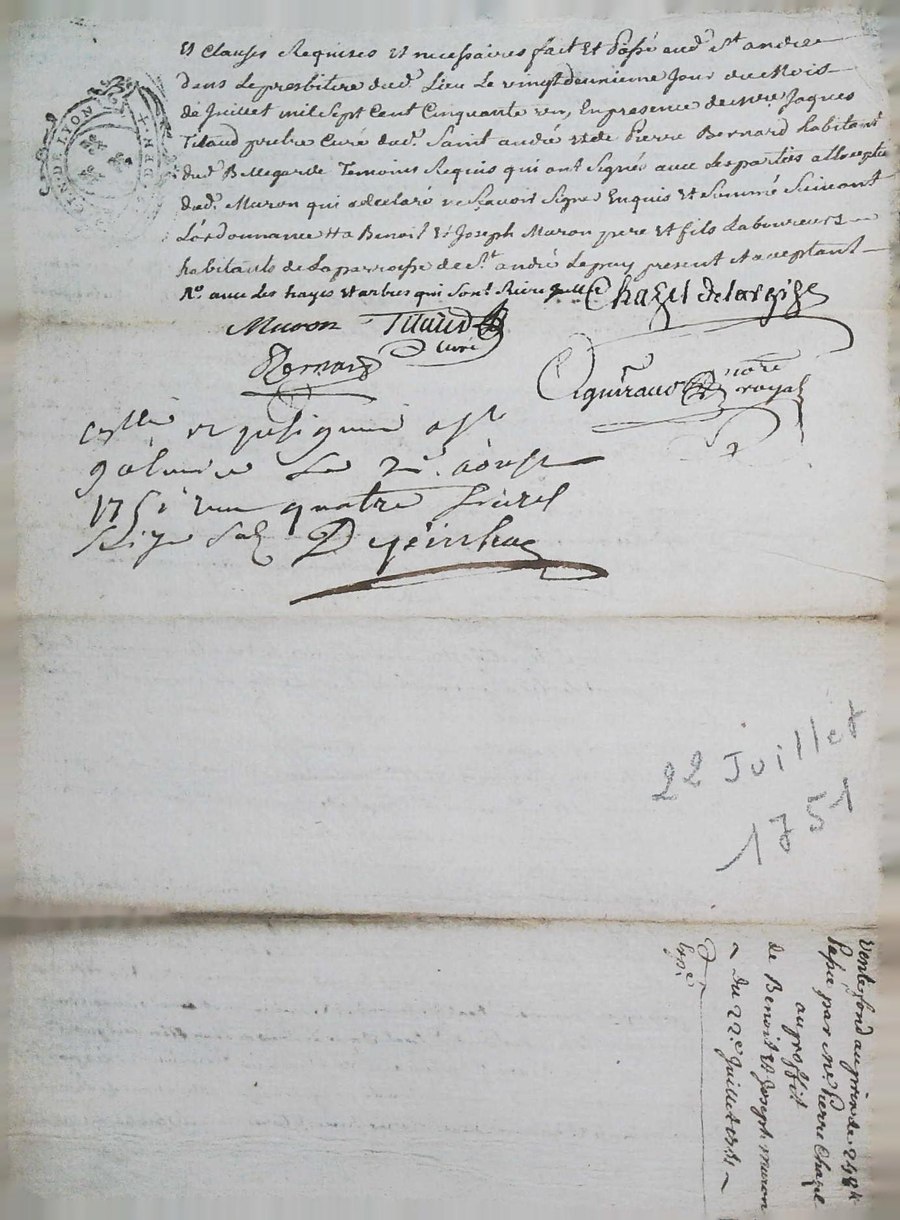 GEN. DE LYON
Et Clauses Requises et necessaires fait et Passé aud. St. andré
dans Le presbitere dud. Lieu Le vingt deuxieme Jour du Mois
de Juillet mil Sept Cent Cinquante un, En presence de mre Jaques
Titaud prebre Curé dud. Saint andré et de Pierre Bernard habitant
dud. Bellegarde Temoins Requis qui ont Signés avec Les parties a Lexception
dud. Muron qui a declaré ne Scavoir Signé Enquis et Sommé Suivant
L'ordonnance Benoit et Joseph Muron pere et fils Laboureurs
habitants de La parroisse de St. andré Le puy present et aceptant
Ro. avec Les hayes et arbres qui Sont
Chazel
Muron Titaud
Curé
Bernard
Aguiraud nore
royal
galmier Le 2e. aoust
1751 quatre Livres
22 Juillet
1751
Vente fond au prix de 248 lt
Passé par Mr. Pierre Chazel
au proffit
de Benoit et Joseph muron
~ Du 22e Juillet 1751 ~